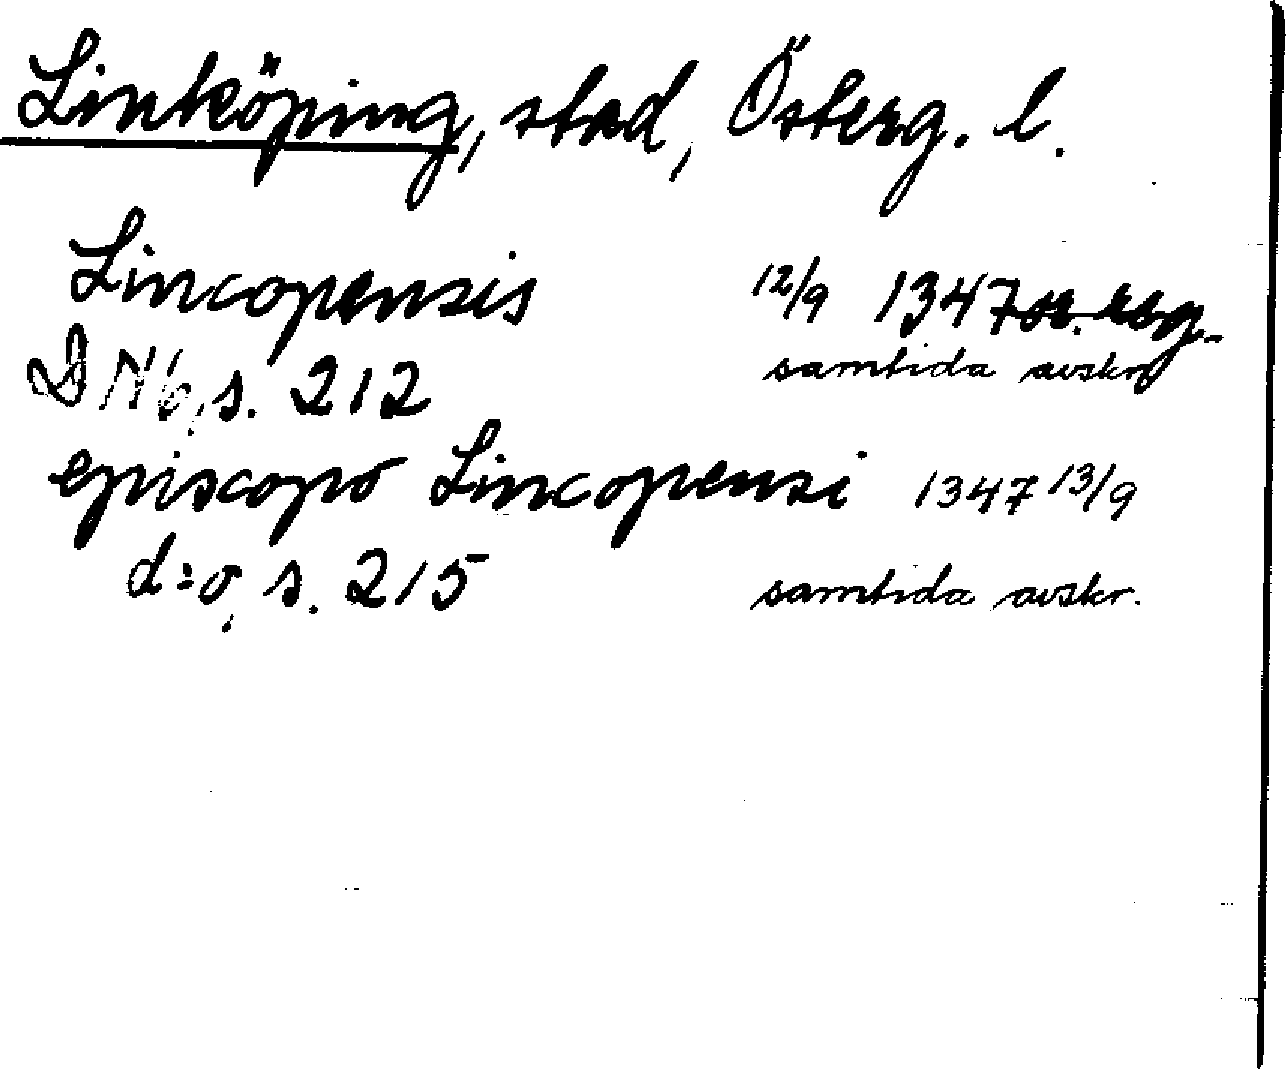 Linköping, stad, Österg. l.
Lincopensis 12/9 1347 or. reg.
samtida avskr
DN 6, s. 212
episcopo Lincopensi 1347 13/9
d:o, s. 215 samtida avskr.